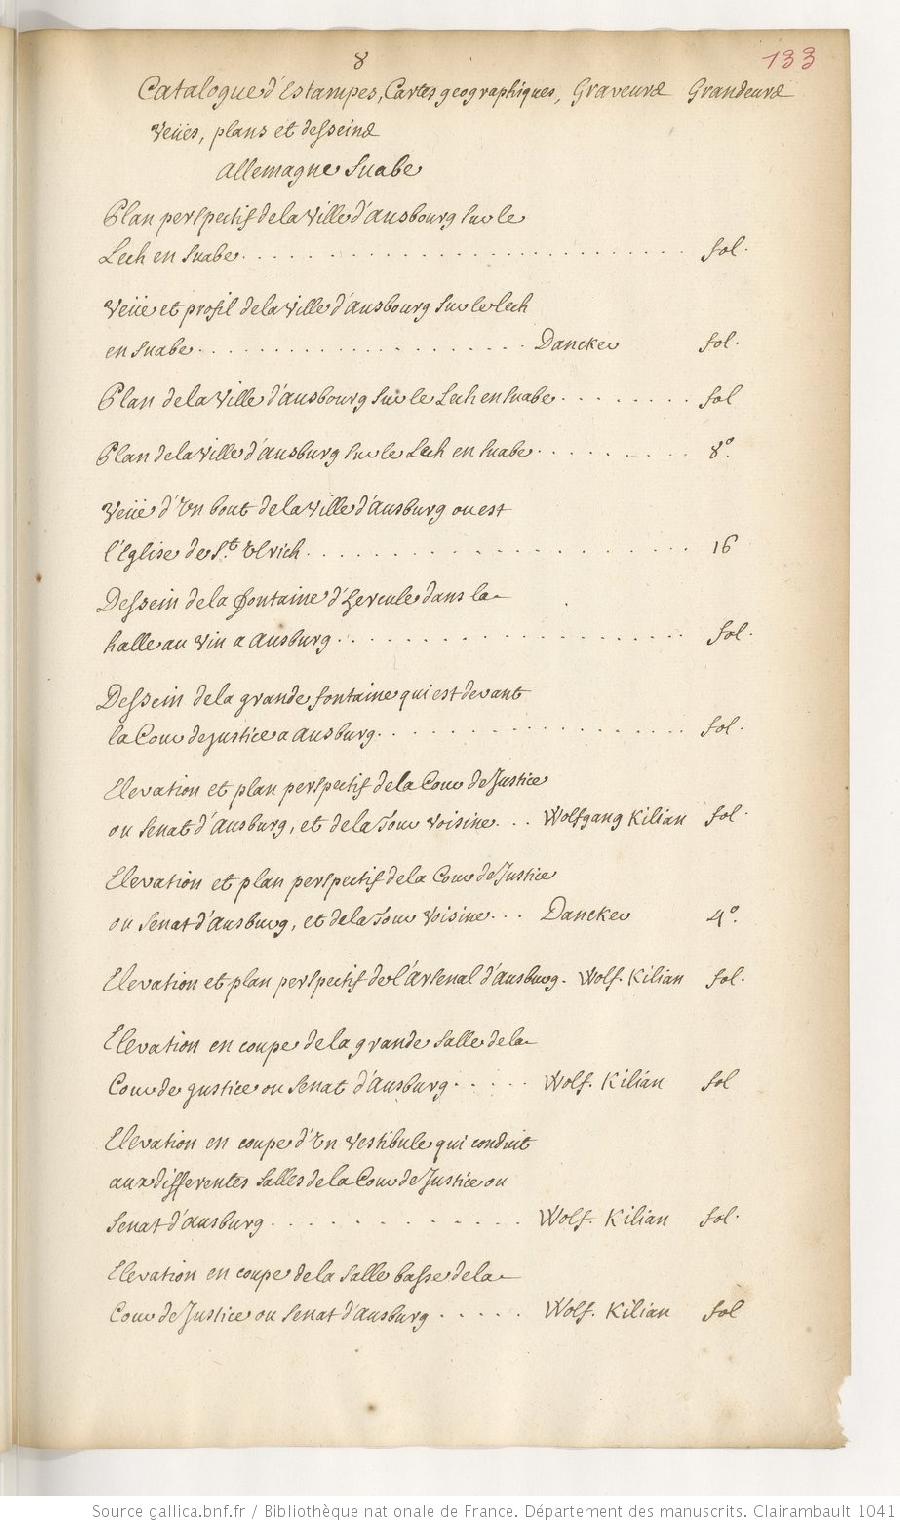 8
133
Catalogue d'Estampes, Cartes geographiques, Graveurs Grandeurs
Veües, plans et desseins
Allemagne Suabe
Plan perspectif de la Ville d'Ausbourg sur le
Lech en Suabe . . . fol.
Veüe et profil de la Ville d'Ausbourg sur le Lech
en Suabe . . . Dancker fol.
Plan de la Ville d'Ausbourg sur le Lech en Suabe . . . fol
Plan de la Ville d'Ausburg sur le Lech en Suabe . . . 8°.
Veüe d'Un bout de la Ville d'Ausburg ou est
l'Eglise de St. Ulrich . . . 16
Dessein de la fontaine d'Hercule dans la
halle au Vin a Ausburg . . . fol.
Dessein de la grande fontaine qui est devant
la Cour de justice a Ausburg . . . fol.
Elevation et plan perspectif de la Cour de Justice
ou Senat d'Ausburg, et de la Tour Voisine . . . Wolfgang Kilian fol.
Elevation et plan perspectif de la Cour de Justice
ou Senat d'Ausburg, et de la Tour Voisine . . . Dancker 4°.
Elevation et plan perspectif de l'Arsenal d'Ausburg. Wolf. Kilian fol.
Elevation en coupe de la grande Salle de la
Cour de justice ou Senat d'Ausburg . . . Wolf. Kilian fol
Elevation en coupe d'Un Vestibule qui conduit
aux differentes Salles de la Cour de Justice ou
Senat d'Ausburg . . . Wolf. Kilian fol.
Elevation en coupe de la Salle basse de la
Cour de Justice ou Senat d'Ausburg . . . Wolf. Kilian fol
Source gallica.bnf.fr / Bibliothèque nationale de France. Département des manuscrits. Clairambault 1041